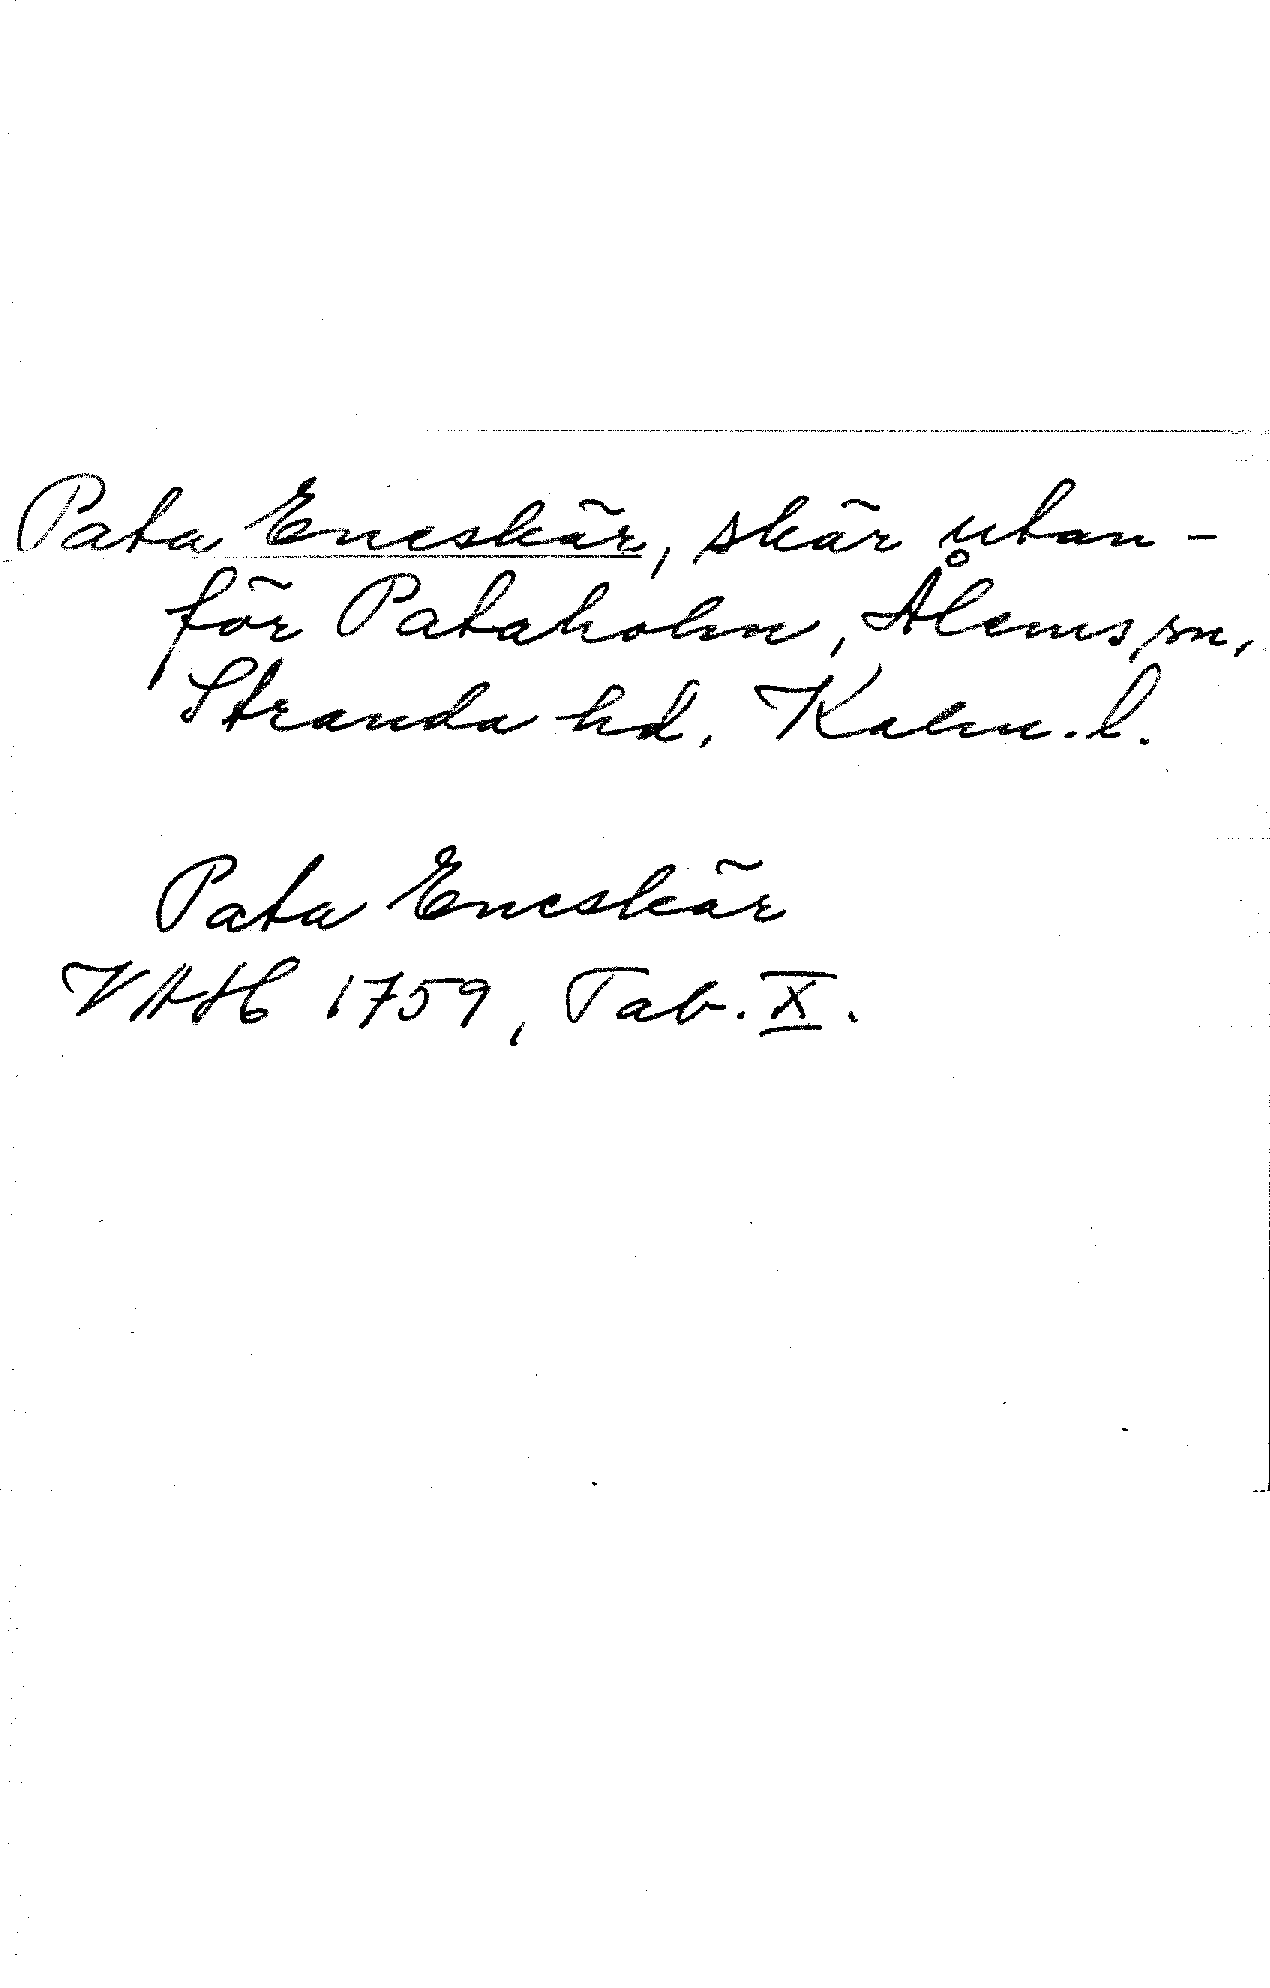 Pata Eneskär, skär utan-
för Pataholm, Ålems sn,
Stranda hd, Kalm. l.
Pata Eneskär
VAH 1759, Tab. X.